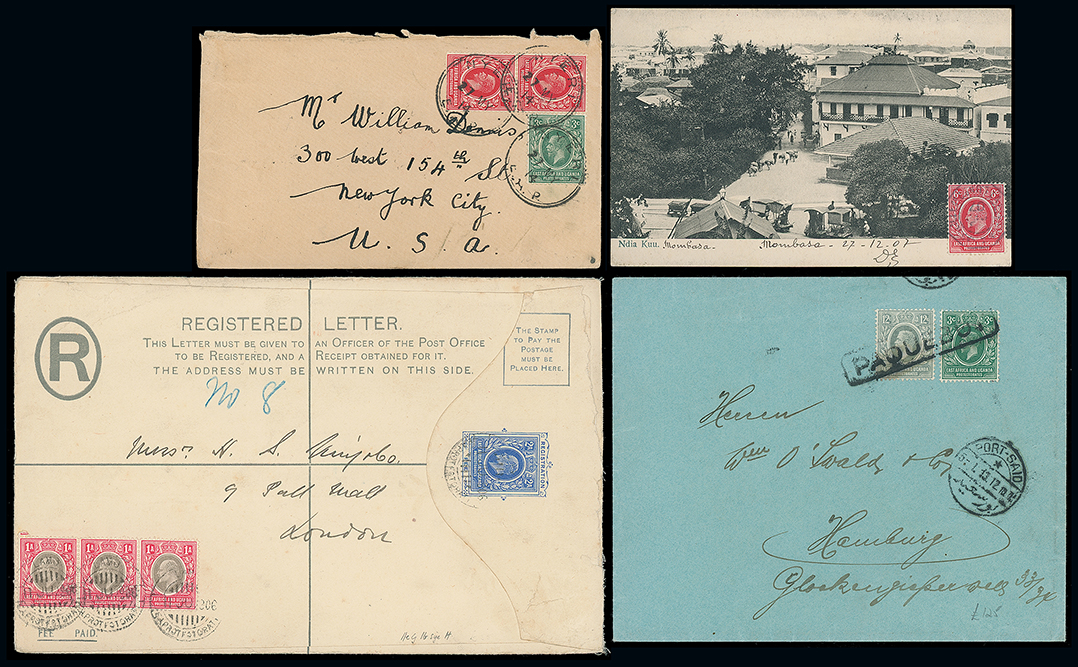 Mr William Dennis
300 West 154th St
New York City.
U. S. A.
3c
EAST AFRICA AND UGANDA
PROTECTORATES
6c 6c
EAST AFRICA AND UGANDA
PROTECTORATES
Ndia Kuu. Mombasa.
Mombasa - 27-12-07
REGISTERED LETTER.
THIS LETTER MUST BE GIVEN TO AN OFFICER OF THE POST OFFICE
TO BE REGISTERED, AND A RECEIPT OBTAINED FOR IT.
THE ADDRESS MUST BE WRITTEN ON THIS SIDE.
R
THE STAMP
TO PAY THE
POSTAGE
MUST BE
PLACED HERE.
No 8
REGISTRATION
Messrs H. S. King & Co.
9 Pall Mall
London
1A 1A
1A 1A
1A 1A
FEE PAID.
12c 12c
EAST AFRICA AND UGANDA
PROTECTORATES
3c 3c
EAST AFRICA AND UGANDA
PROTECTORATES
PAQUEBOT
Herren
Wm O'Swald & Co
PORT-SAID
Hamburg
33/34
£125